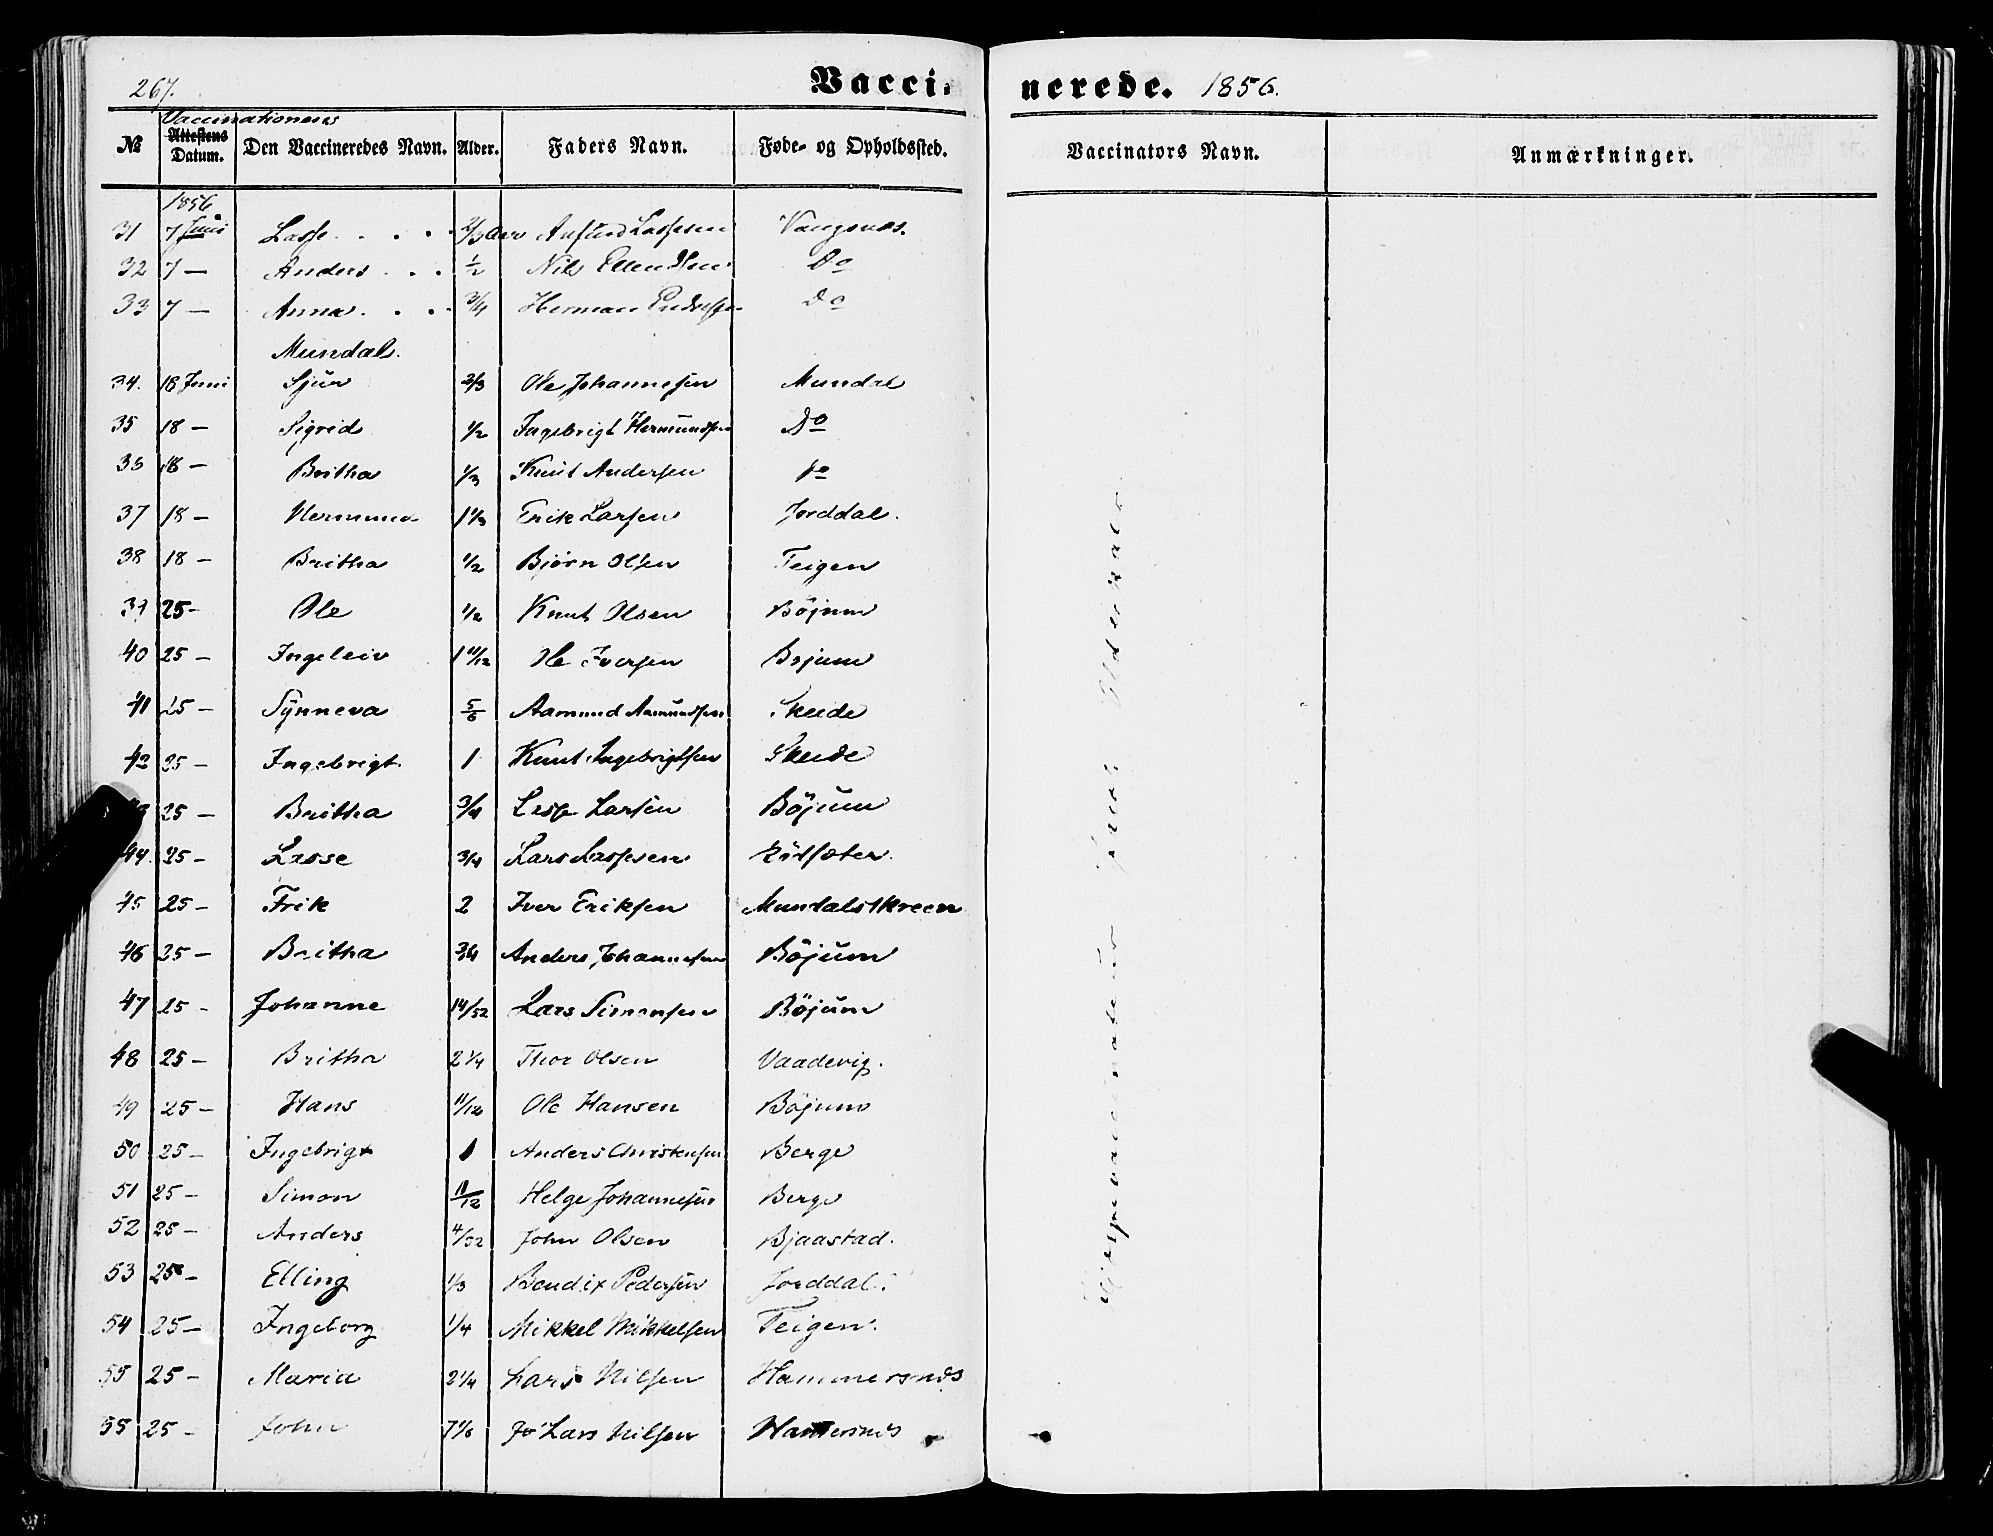 267.
Vaccinerede. 1856.
Vaccinationens
№ Attestens Datum. Den Vaccineredes Navn. Alder. Faders Navn. Føde- og Opholdssted. Vaccinators Navn. Anmærkninger.
1856
31 7 Juni Lasse 2/3 Aar Anfind Lassesen Vangsnæs.
32 7 — Anders 1/2 Nils Ellendsen Do
33 7 — Anna 3/4 Herman Do
Mundal.
34. 18 Juni Sjur 2/3 Ole Johannesen Mundal
35 18 — Sigrid 1/2 Ingebrigt Hermundsen Do
36 18 — Britha 1/3 Knut Andersen Do
37 18 — Hermund 1 1/3 Erik Larsen Jorddal.
38 18 — Britha 1/2 Bjørn Olsen Teigen
39 25 — Ole 1/2 Knut Olsen Böjum
40 25 — Ingeleiv 1 11/12 Ole Iversen Bojum
41 25 — Synneva 5/6 Aamund Aamundsen Skeide
42 25 — Ingebrigt 1 Knut Ingebrigtsen Skeide
43 25 — Britha 3/4 Lasse Larsen Böjum
44. 25 — Lasse 3/4 Lars Lassesen
45 25 — Erik 2 Iver Eriksen Mundalskreen
46 25 — Britha 3/4 Anders Johannesen Böjum
47 25 — Johanne 14/52 Lars Simonsen Böjum
48 25 — Britha 2 1/4 Thor Olsen Vaadevig.
49 25 — Hans 11/12 Ole Hansen Böjum
50 25 — Ingebrigt 1 Anders Christensen Berge
51 25 — Simon 11/12 Helge Johannesen Berge
52 25 — Anders 4/52 John Olsen Bjaastad.
53 25 — Elling 1/3 Bendix Pedersen Jorddal.
54 25 — Ingeborg 1/4 Mikkel Mikkelsen Teigen.
55 25 — Maria 2 1/4 Lars Nilsen Hammersnæs
55 25 — John 7 1/6 Lars Nilsen
Hjelpevaccinateur